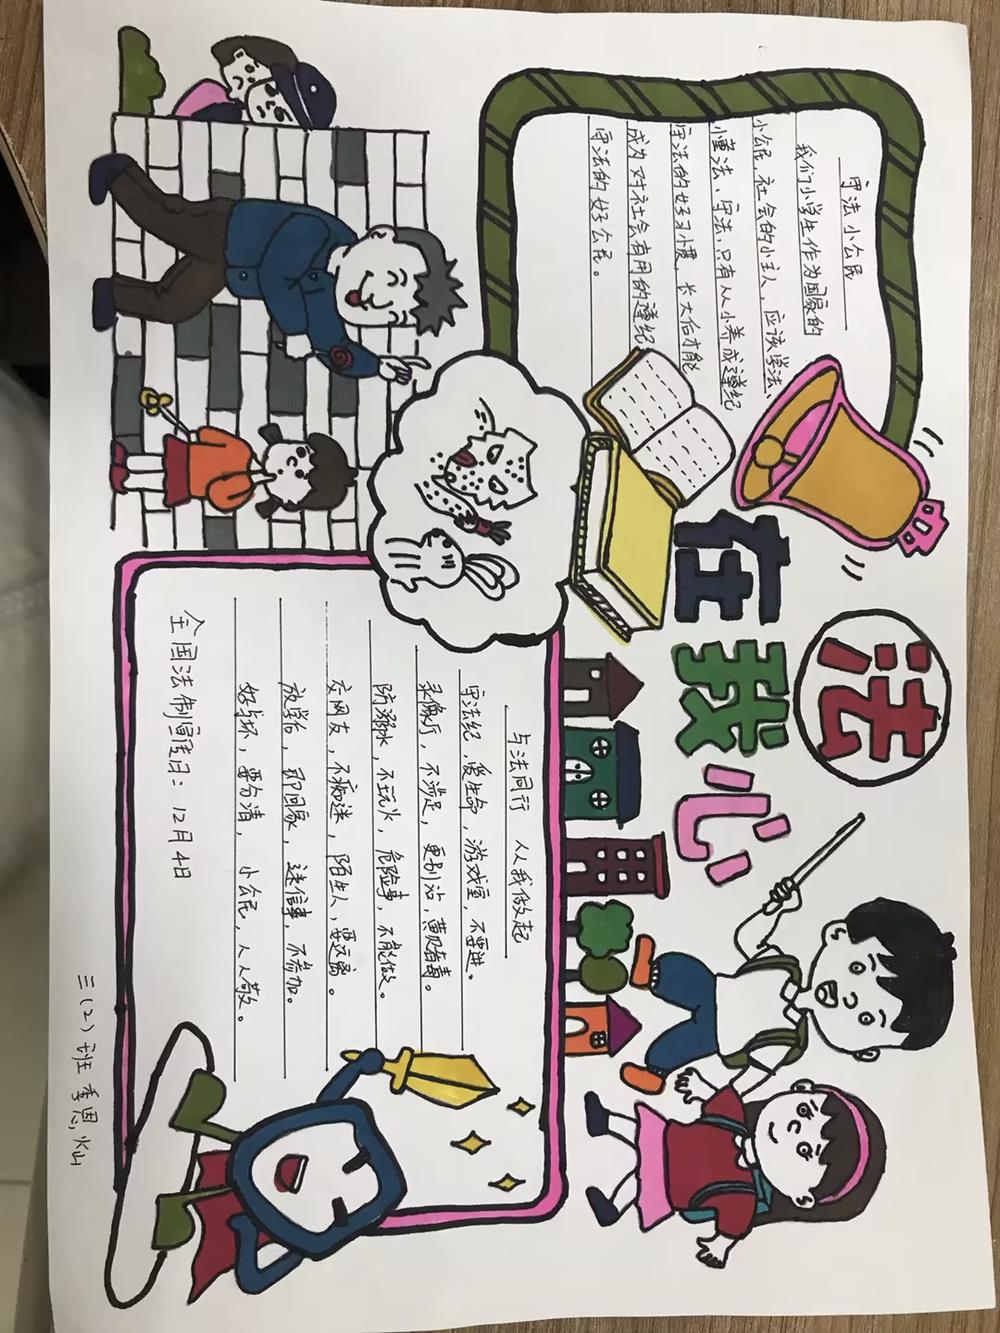 法
在我心
守法小公民
我们小学生作为国家的
小公民,社会的小主人,应该学法、
懂法、守法,只有从小养成遵纪
守法的好习惯,长大后才能
成为对社会有用的遵纪
守法的好公民。
与法同行 从我做起
守法纪,爱生命,游戏室,不要进。
录像厅,不涉足,更别沾,黄赌毒。
防溺水,不玩火,危险事,不能做。
交网友,不痴迷,陌生人,要远离。
放学后,即回家,迷信事,不参加。
好与坏,要分清,小公民,人人敬。
全国法制宣传日:12月4日
三(2)班 李思灿